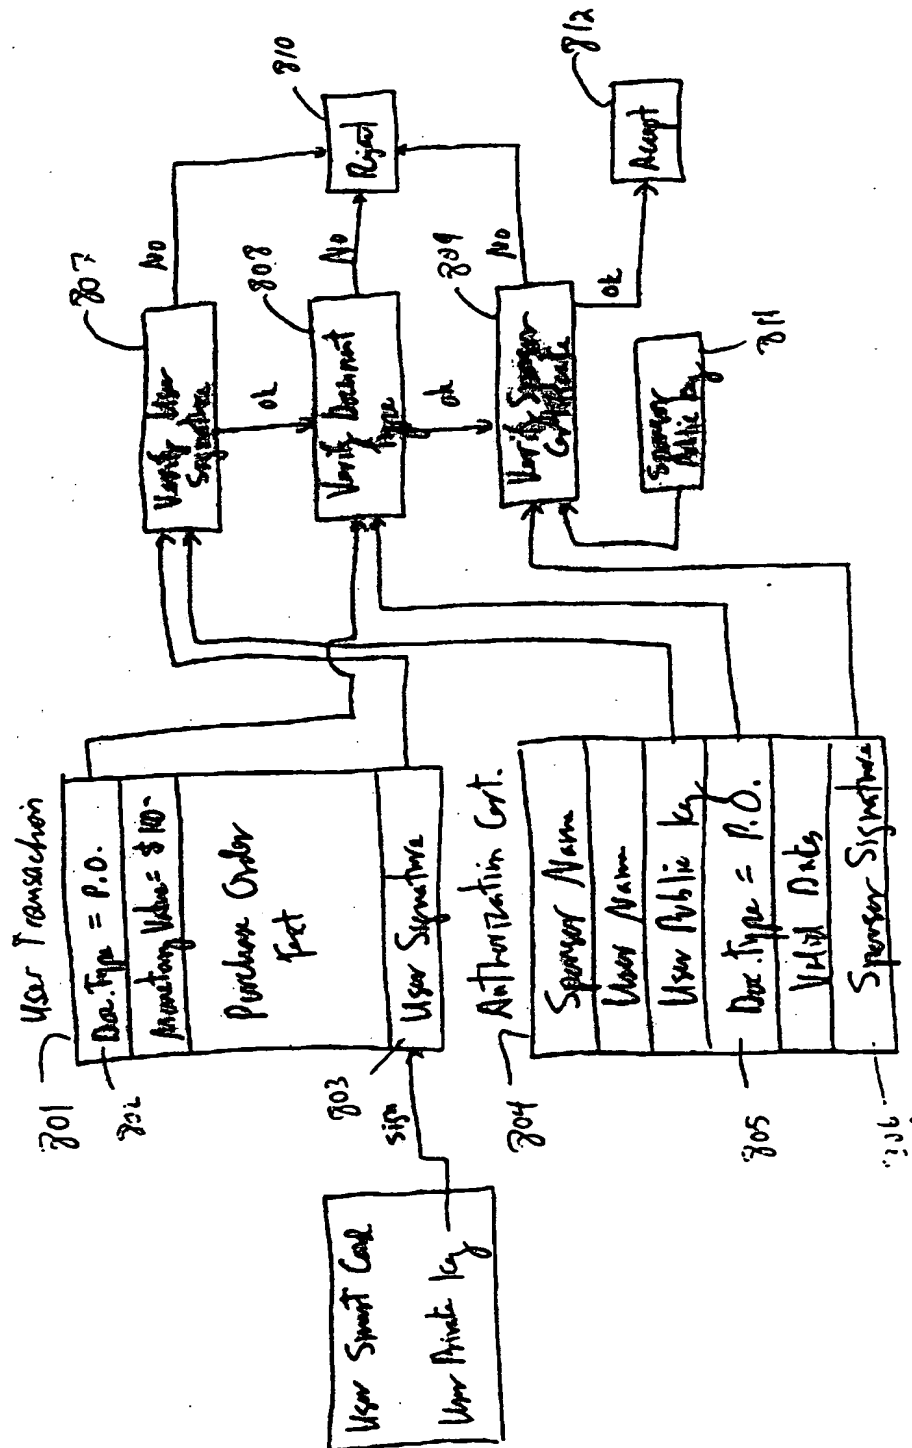 User Smart Card
User Private key
sign
801
User Transaction
802
Doc. Type = P.O.
Monetary Value = $
Purchase Order
Text
803
User Signature
804
Authorization Cert.
Sponsor Name
User Name
User Public key
805
Doc. Type = P.O.
Valid Dates
Sponsor Signature
807
Verify User
Signature
No
ok
808
Verify Document
Type
No
ok
809
Verify Sponsor
Certificate
No
ok
810
Reject
Sponsor
Public key
811
812
Accept